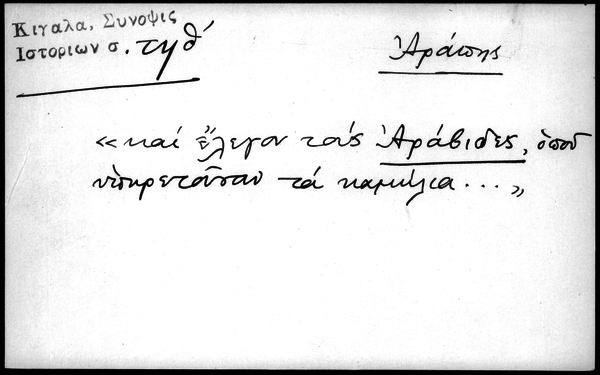 Κιγαλα, Συνοψις
Ιστοριων σ. τηθ́
Ἀράπης
«καί ἔλεγον τούς Ἀράβιδες, ὁπού
ὑπηρετοῦσαν τά καμήλια...»